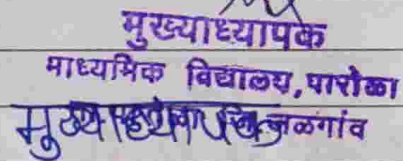 मुख्याध्यापक
माध्यमिक विद्यालय, पारोळा
जळगांव